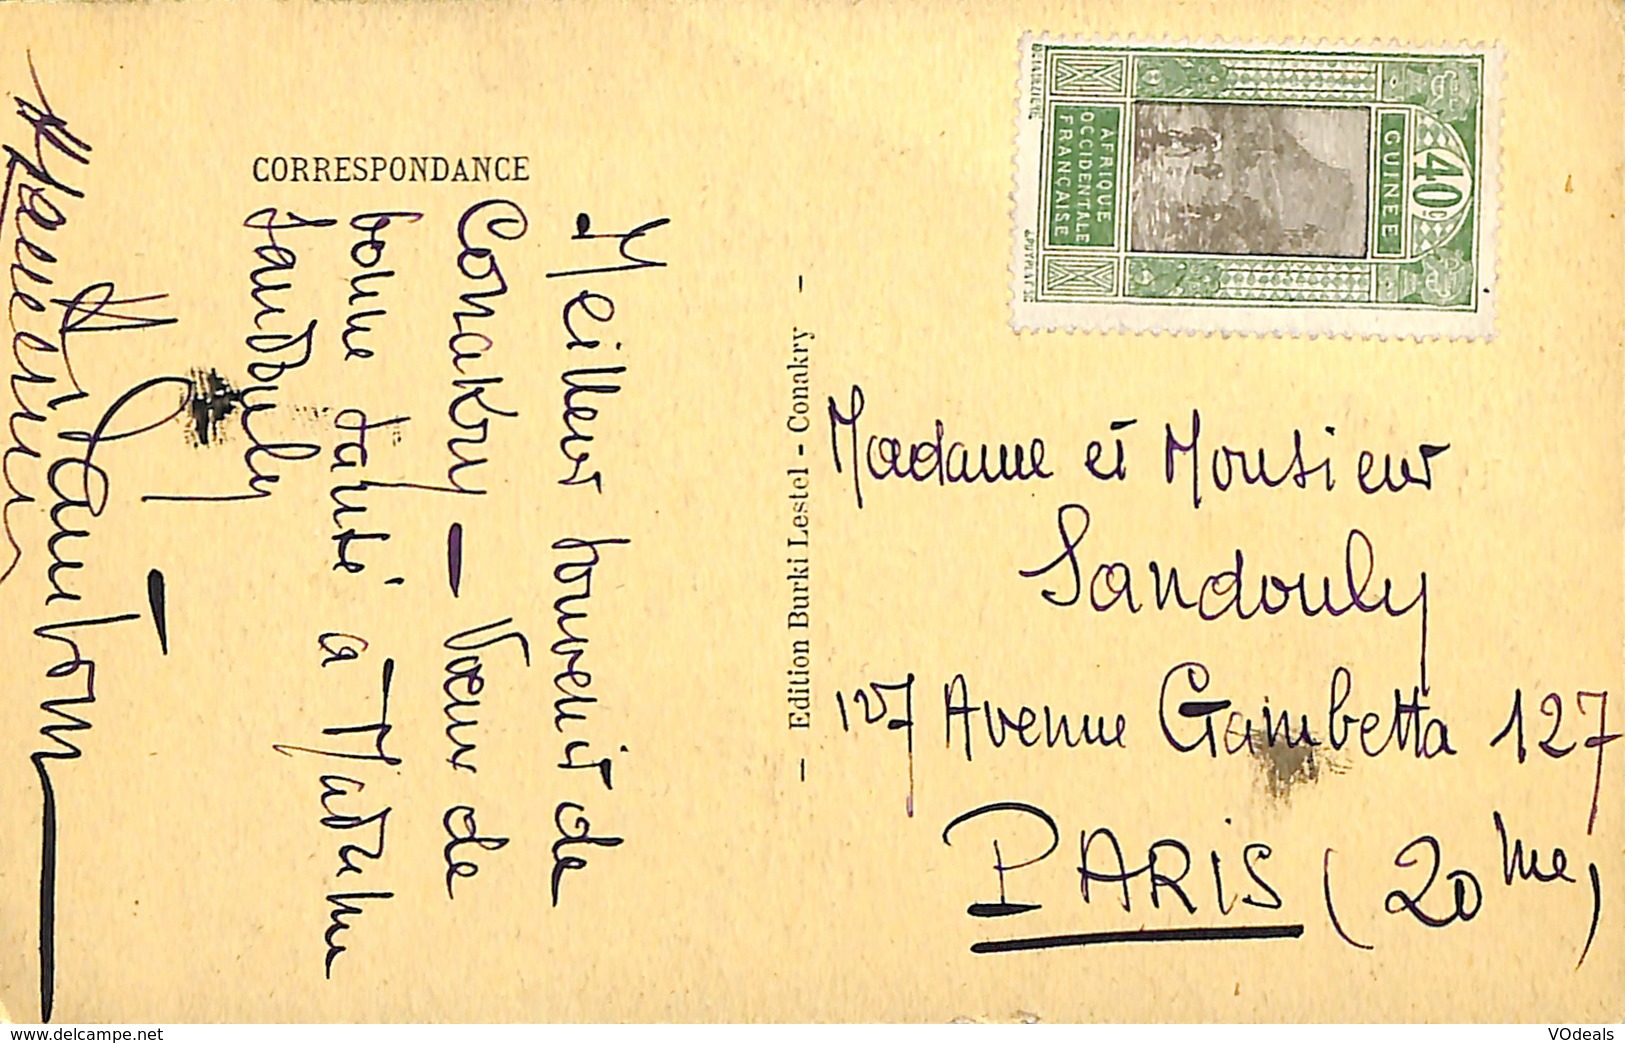 CORRESPONDANCE
Meilleur souvenir de
Conakry — Vœux de
bonne santé à Madame
Sandouly
— Edition Burki Lestel - Conakry —
40c
GUINÉE
AFRIQUE
OCCIDENTALE
FRANÇAISE
Madame et Monsieur
Sandouly
127 Avenue Gambetta 127
PARIS (20me)
delcampe.net
VOdeals